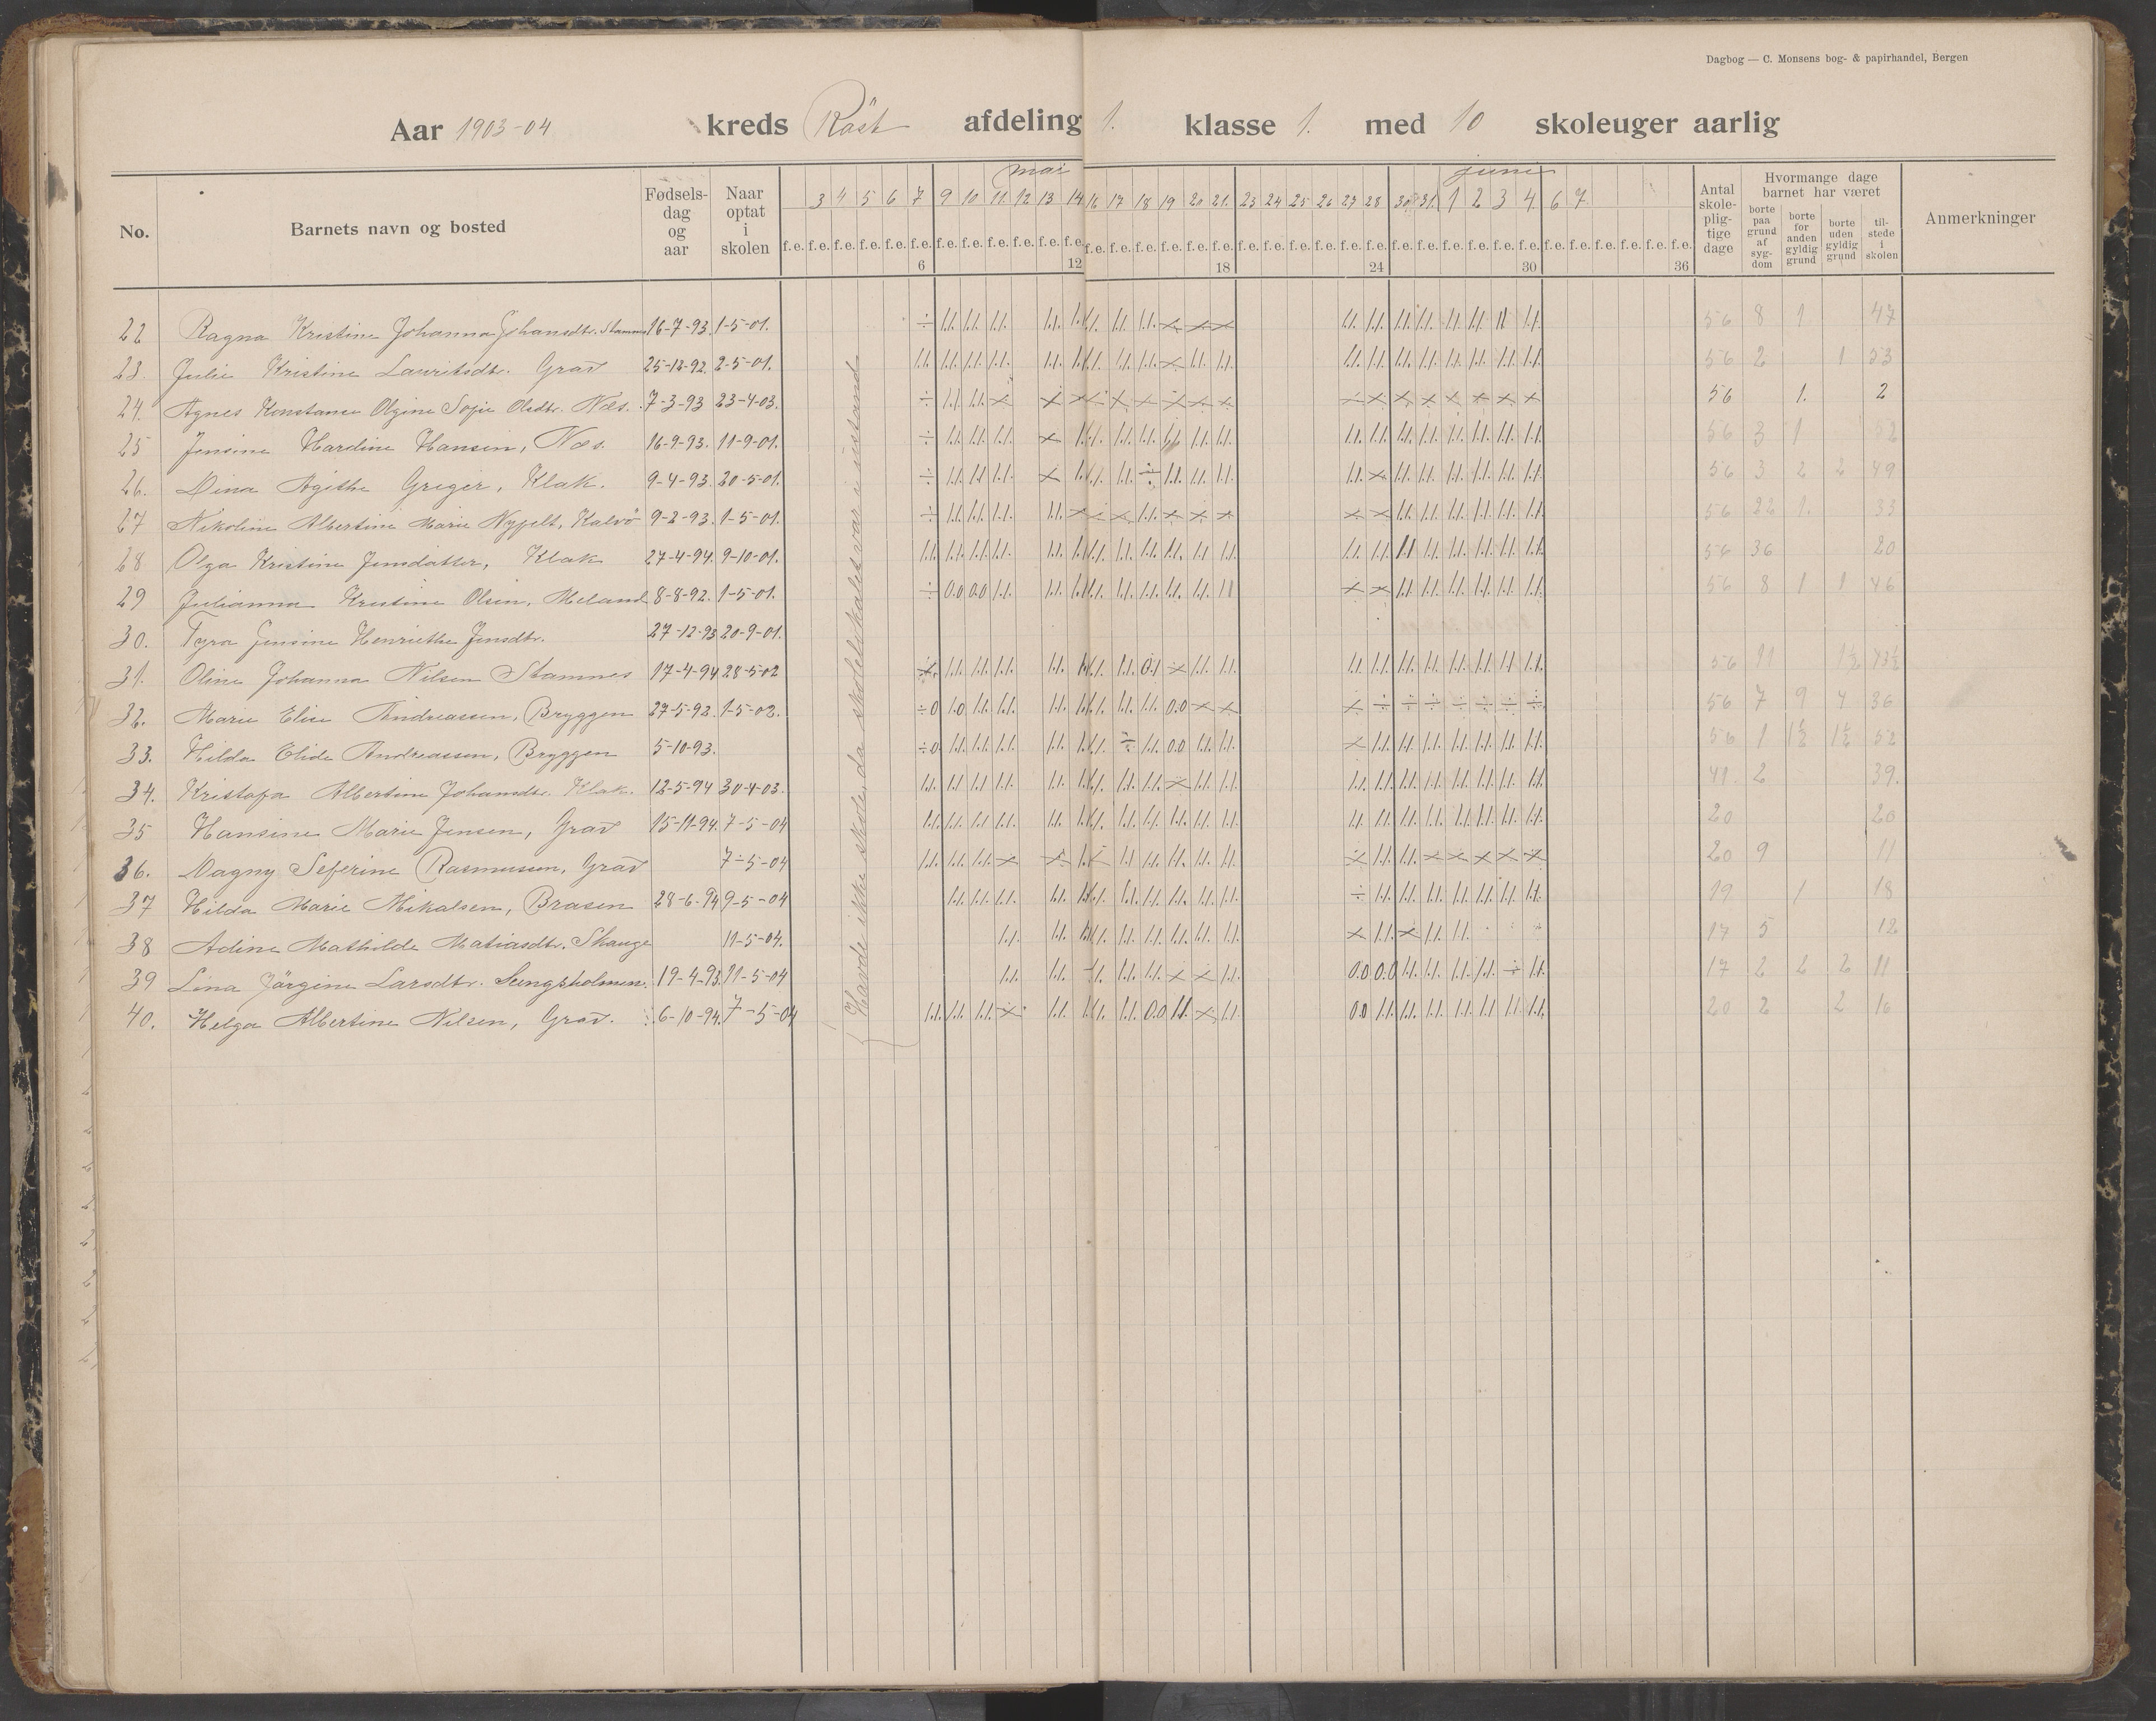 Dagbog — C. Monsens bog- & papirhandel, Bergen
Aar 1903-04 kreds Räst afdeling 1. klasse 1. med 10 skoleuger aarlig
No. Barnets navn og bosted Fødsels-dag og aar Naar optat i skolen mai juni Antal skole-plig-tige dage Hvormange dage barnet har været Anmerkninger
3 4 5 6 7 9 10 11. 12 13 14 16 17 18 19 20 21. 23 24 25 26 27 28 30 31. 1 2 3 4. 6 7.
borte paa grund af syg-dom borte for anden gyldig grund borte uden gyldig grund til-stede i skolen
f.e. f.e. f.e. f.e. f.e. f.e. f.e. f.e. f.e. f.e. f.e. f.e. f.e. f.e. f.e. f.e. f.e. f.e. f.e. f.e. f.e. f.e. f.e. f.e. f.e. f.e. f.e. f.e. f.e. f.e. f.e. f.e. f.e. f.e. f.e. f.e.
6 12 18 24 30 36
22 Ragna Kristine Johanna Johansdtr. Stamnes 16-7-93. 1-5-01. 56 8 1 47
23. Julie Kristine Lauritsdtr. Grav 25-12-92. 2-5-01. 56 2 1 53
24. Agnes Konstanse Olgine Sofie Olsdtr. Næs. 7-3-93 23-4-03. 56 1. 2
25 Jensine Hardine Hansen, Næs. 16-9-93. 11-9-01. 56 3 1 52
26. Dina Agithe Greger, Klak. 9-4-93. 20-5-01. 56 3 2 2 49
27 Nikoline Albertine Marie Nypelt, Kalvö 9-2-93. 1-5-01. 56 22 1. 33
28 Olga Kristine Jensdatter, Klak 27-4-94. 9-10-01. 56 36 20
29 Julianna Kristine Olsen, Meland 8-8-92. 1-5-01. 56 8 1 1 46
30. Tyra Jensine Henriethe Jensdtr. 27-12-93 20-9-01.
31. Oline Johanna Nilsen Stamnes 17-4-94 28-5-02 56 11 1½ 43½
32. Marie Elise Andreassen, Bryggen 27-5-92. 1-5-02. 56 7 9 4 36
33. Hilda Elide Andreassen, Bryggen 5-10-93. 56 1 1½ 1½ 52
34. Kristofa Albertine Johansdtr. Klak. 12-5-94 30-4-03. 41. 2 39.
35 Hansine Marie Jensen, Grav 15-11-94. 7-5-04 20 20
36. Magny Seferine Rasmussen, Grav 7-5-04 20 9 11
37 Hilda Marie Mikalsen, Brasen 28-6-94 9-5-04 19 1 18
38 Adine Mathilde Matiasdtr. Skauge 11-5-04. 17 5 12
39 Lina Jörgine Larsdtr. Sengsholmen. 19-4-93. 11-5-04 17 2 2 2 11
40. Helga Albertine Nilsen, Grav. 6-10-94. 7-5-04 20 2 2 16
Havde ikke skole, da skolelokalet var i ustand